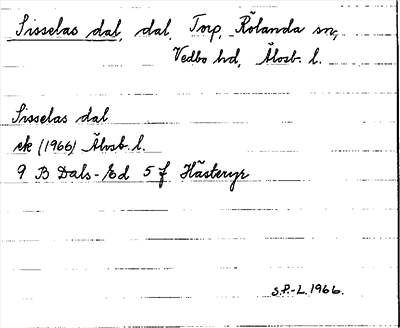 Sisselas dal, dal, Torp, Rölanda sn,
Vedbo hd, Älvsb. l.
Sisselas dal
ek (1966) Älvsb. l.
9 B Dals-Ed 5 f Hästeryr
S.P.-L. 1966.